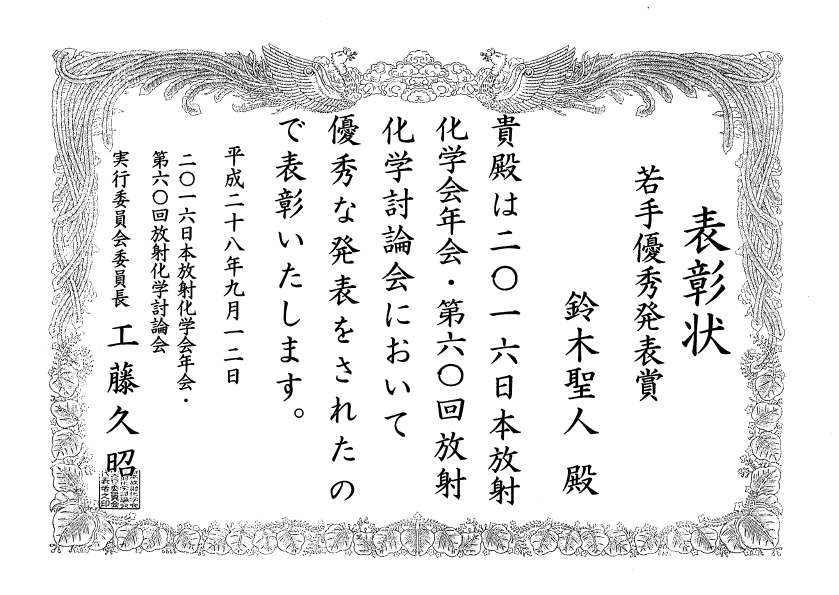 表彰状
若手優秀発表賞
鈴木聖人 殿
貴殿は二〇一六日本放射
化学会年会・第六〇回放射
化学討論会において
優秀な発表をされたの
で表彰いたします。
平成二十八年九月一二日
二〇一六日本放射化学会年会・
第六〇回放射化学討論会
実行委員会委員長 工藤久昭